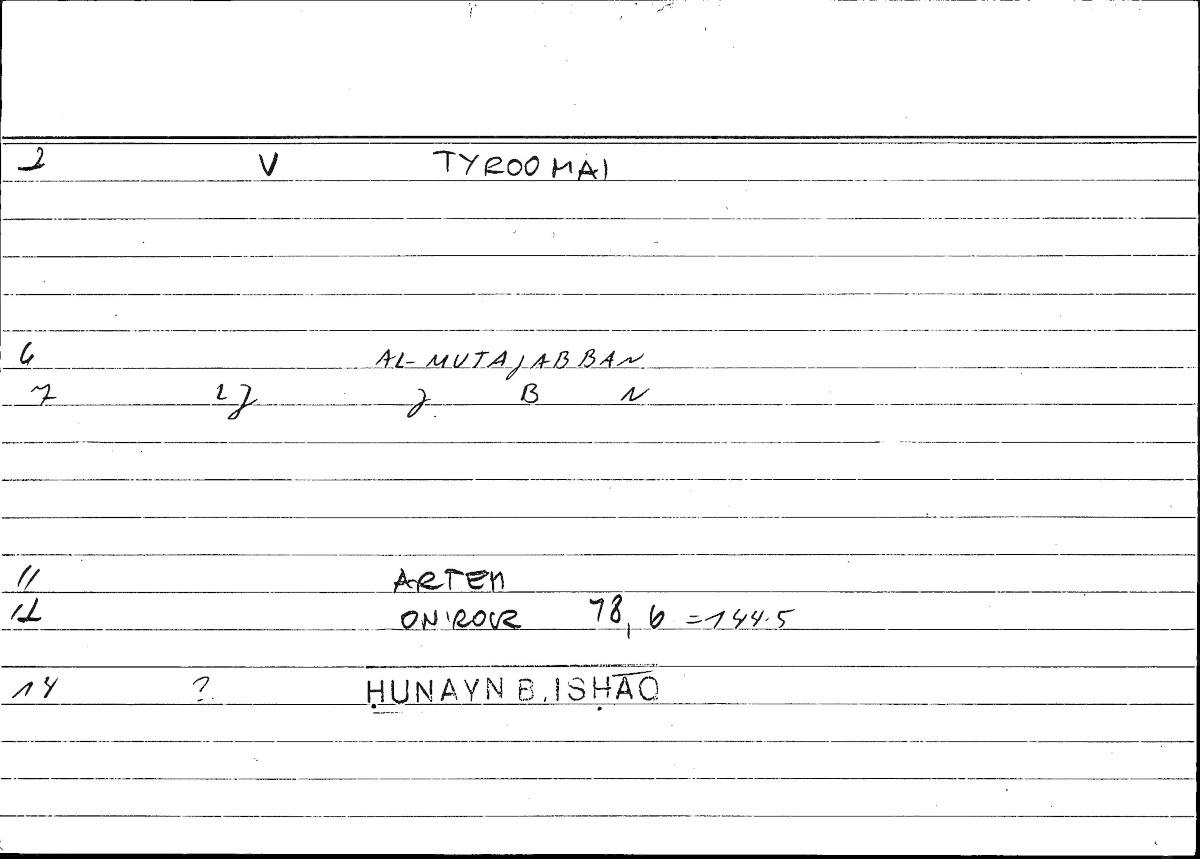 2 V TYROOMAI
6 AL-MUTAJABBAN
7 1J J B N
11 ARTEM
12 ONIROCR 78, 6 = 144.5
14 ? ḤUNAYN B. ISḤĀQ